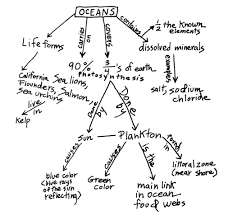 OCEANS
contains
½ the known
elements
carries
on
covers
Life forms
dissolved minerals
90%
¾'s of earth
Photosynthesis
example
California Sea lions,
Flounders, Salmon,
Sea urchins
salt, sodium
chloride
live
in
Kelp
Done
by
by
Sun
Plankton
causes
causes
is the
found
in
blue color
(blue rays
of the sun
reflecting)
Green
color
main link
in ocean
food webs
littoral zone
(near shore)